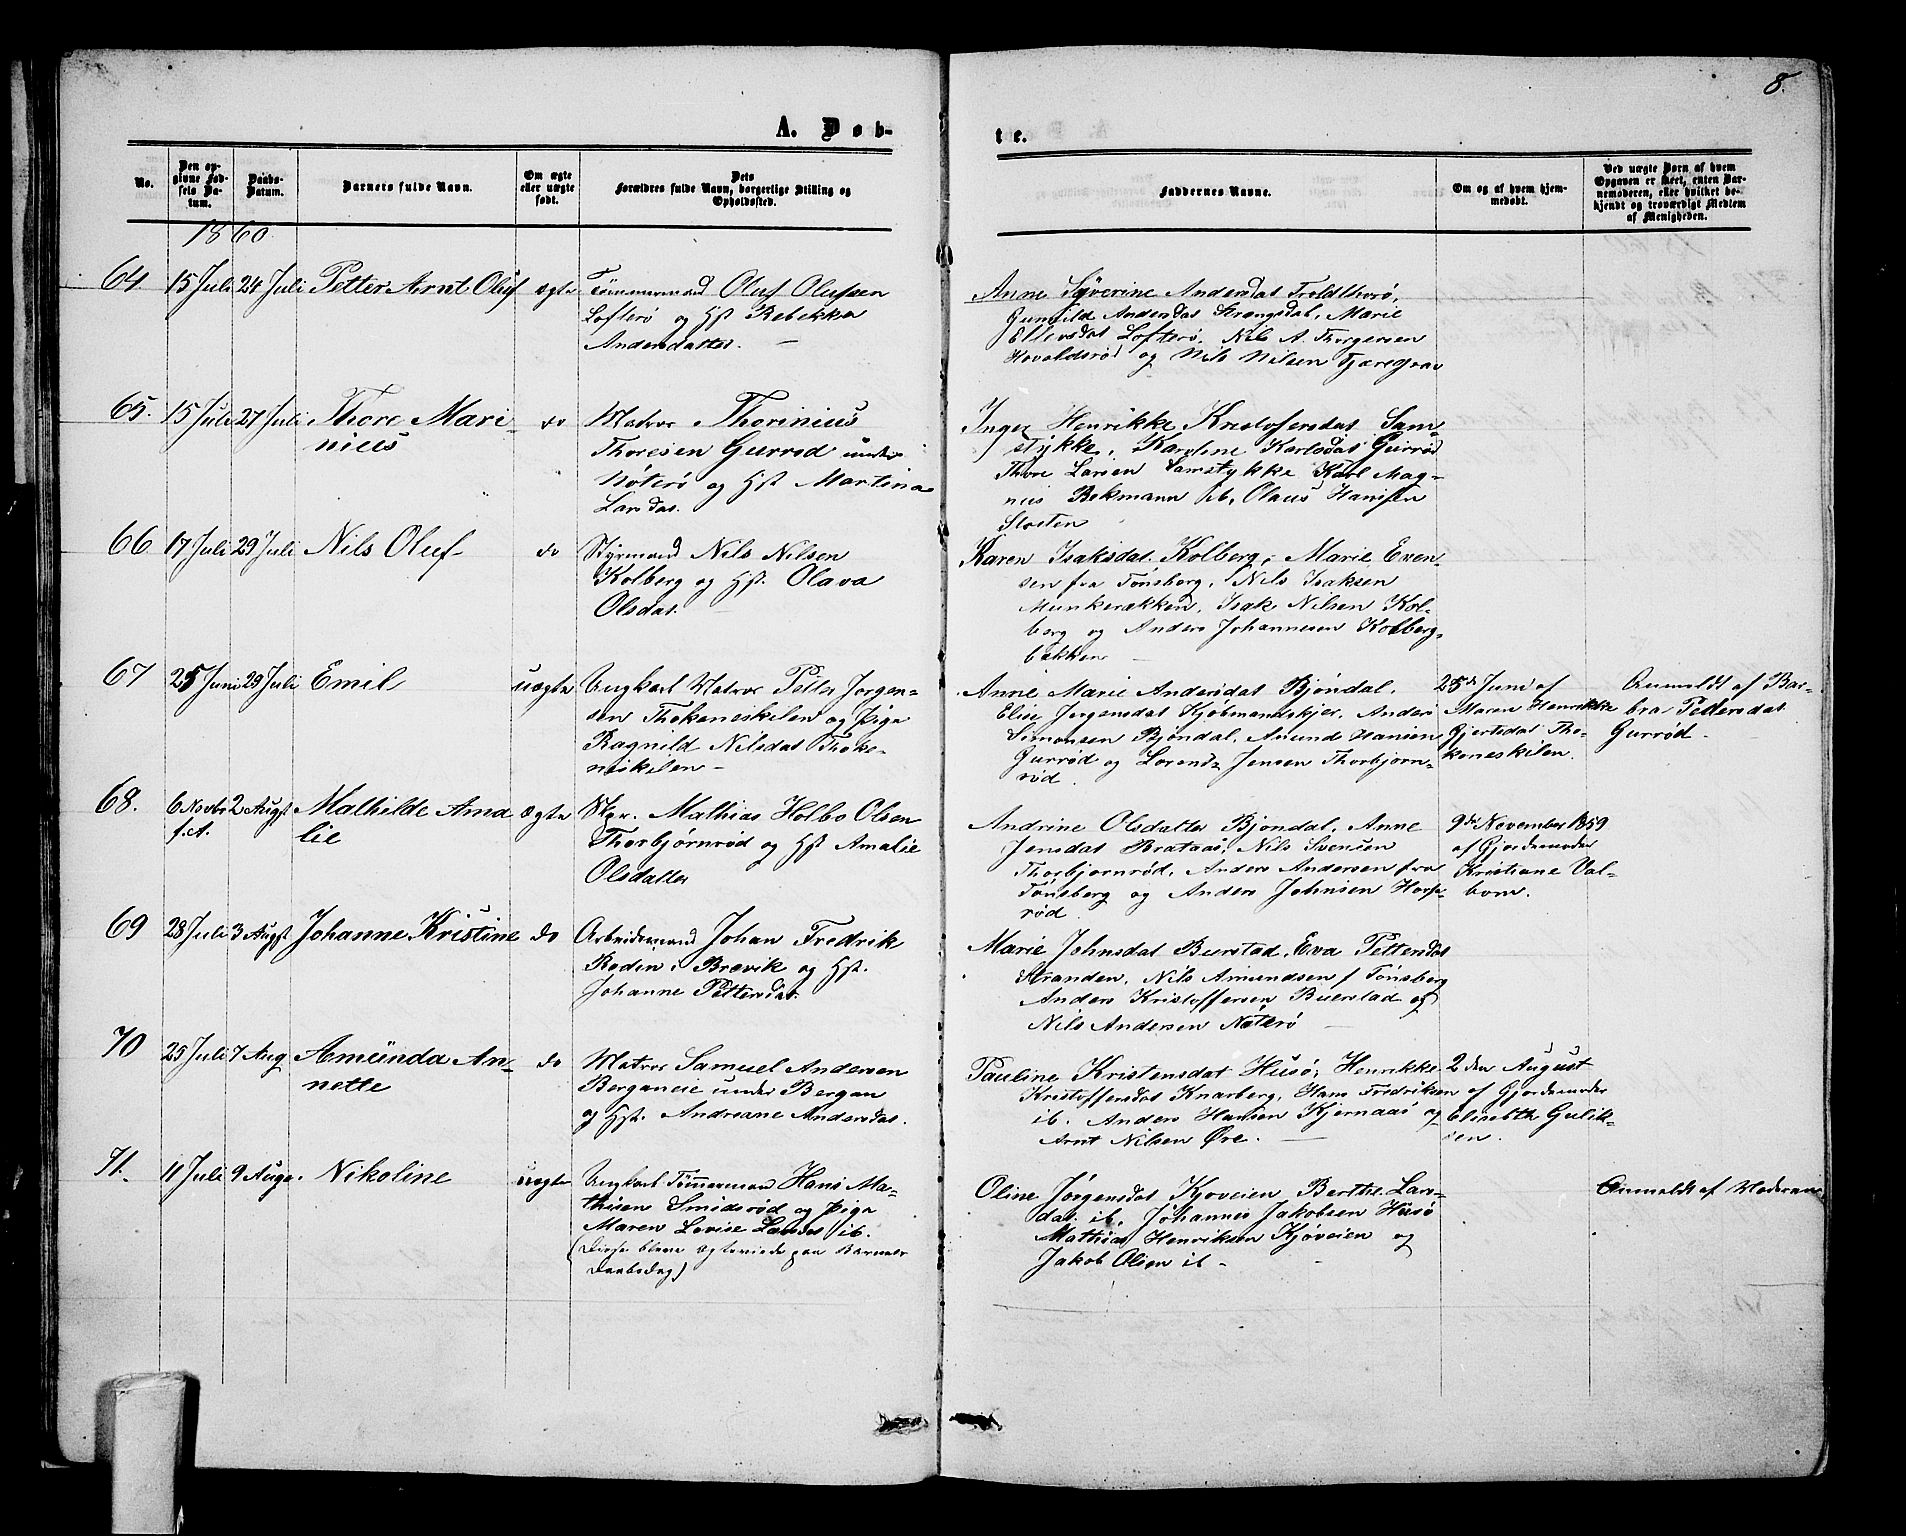 8.
A. Døb-
te.
No.
Den opgivne Fødsels Datum.
Daabs-Datum.
Barnets fulde Navn.
Om ægte eller uægte født.
Dets Forældres fulde Navn, borgerlige Stilling og Opholdssted.
Faddernes Navne.
Om og af hvem hjemmedøbt.
Ved uægte Børn af hvem Opgaven er skeet, enten Barnemoderen, eller hvilket bekjendt og troværdigt Medlem af Menigheden.
1860
64 15 Juli 24 Juli Petter Arnt Oluf ægte
Tømmermand Oluf Olufsen
Lofterø og Hst Rebekka
Andersdatter. —
Anne Syverine Andersdat Troldthorø,
Gunnild Andersdat Strengsdal, Marie
Ellevsdat Lofterø, Nils A. Thorgersen
Hovaldsrød og Nils Nilsen Tjæregrav
65. 15 Juli 27 Juli Thore Mari-
nius
do
Matros Thorinius
Thoresen Gurrød under
Nøterø og Hst Martina
Larsdat.
Inger Henrikke Kristofersdat Sam-
stykke, Karoline Karlsdat Gurrød
Thore Larsen Samstykke Karl Mag-
nus Bekmann ib, Olaus Hansen
Sloiten
66 17 Juli 29 Juli Nils Oluf do
Styrmand Nils Nilsen
Kolberg og Hst. Olava
Olsdat. —
Karen Isaksdat. Kolberg, Marie Even-
sen fra Tønsberg, Nils Isaksen
Munkerækken, Isak Nilsen Kol-
berg og Anders Johannesen Kolberg-
bakken —
67 25 Juni 29 Juli Emil uægte
Ungkarl Matros Peter Jorgen-
sen Thokeneskilen og Pige
Ragnild Nilsdat Thoke-
neskilen —
Anne Marie Andersdat Bjøndal,
Elise Jorgensdat Kjøbmandskjer, Anders
Simonsen Bjøndal, Amund Hansen
Gurrød og Lorends Jensen Thorbjørn-
rød.
25de Juni af
Maren Henrikke
Gjertsdat Tho-
keneskilen.
Anmeldt af Bar-
bra Pedersdat
Gurrød.
68. 6 Novbr 2 Augst Mathilde Ama
f. A.
lie
ægte
Skpr. Mathias Holbo Olsen
Thorbjørnrød og Hst Amalie
Olsdatter
Andrine Olsdatter Bjondal, Anne
Jensdat Brataas, Nils Svensen
Thorbjornrød, Anders Andersen fra
Tønsberg og Anders Johnsen Horpe-
rød
9de November 1859
af Gjordemoder
Kristiane Val-
bom.
69 28 Juli 3 Augst Johanne Kristine do
Arbeidsmand Johan Fredrik
Roden i Brevik og Hst.
Johanne Pettersdat.
Marie Johnsdat Buerstad, Eva Pettersdat
Stranden, Nils Amundsen f Tønsberg
Anders Kristoffersen Buerstad og
Nils Andersen Nøterø —
70 25 Juli 7 Aug Amunda An-
nette
do
Matros Samuel Andersen
Berganeie under Bergan
og Hst. Andreane Andersdat.
Pauline Kristensdat Husø, Henrikke
Kristoffersdat Knarberg, Hans Fredriksen
ib. Anders Hansen Kjernaas og
Arnt Nilsen Øre. —
2den August
af Gjordemoder
Elisabth Gulik-
sen.
71. 11 Juli 9 Augs. Nikoline uægte
Ungkarl Tømmermand Hans Ma-
thisen Smidsrød og Pige
Maren Lovise Larsdat ib.
(Disse bleve ægteviede paa Barnets
Daabsdag)
Oline Jørgensdat Kjøveien, Berthe Lars-
dat ib, Johannes Jakobsen Husø
Mathias Henriksen Kjøveien og
Jakob Olsen ib —
Anmeldt af Moderen